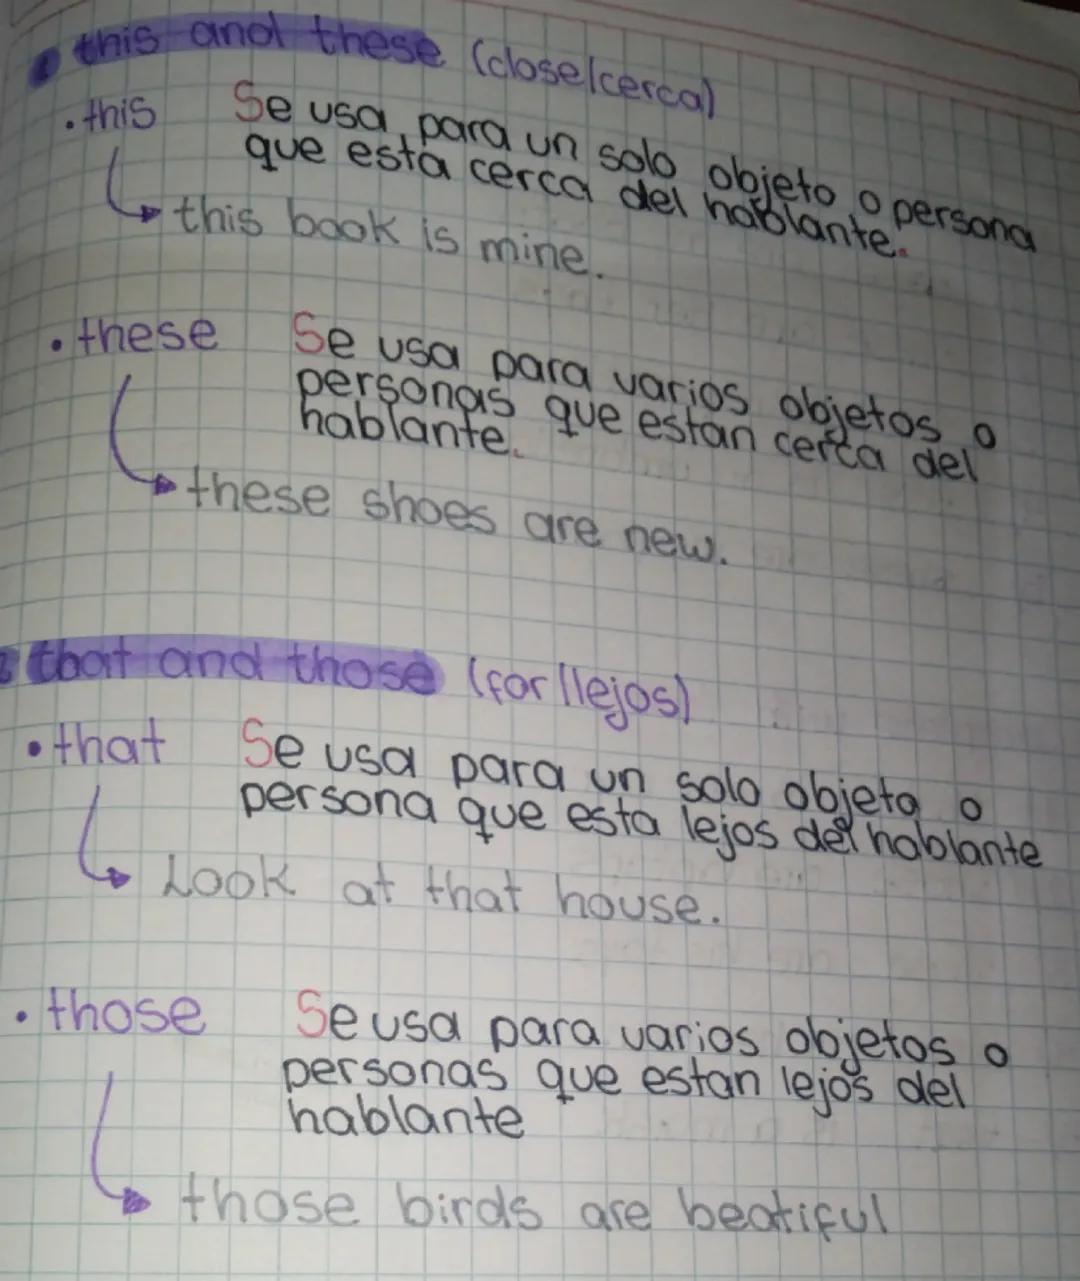 this and these (close/cerca)
• this Se usa para un solo objeto o persona
que esta cerca del hablante.
this book is mine.
• these Se usa para varios objetos o
personas que estan cerca del
hablante.
these shoes are new.
that and those (far/lejos)
• that Se usa para un solo objeto o
persona que esta lejos del hablante
Look at that house.
• those Se usa para varios objetos o
personas que estan lejos del
hablante
those birds are beatiful